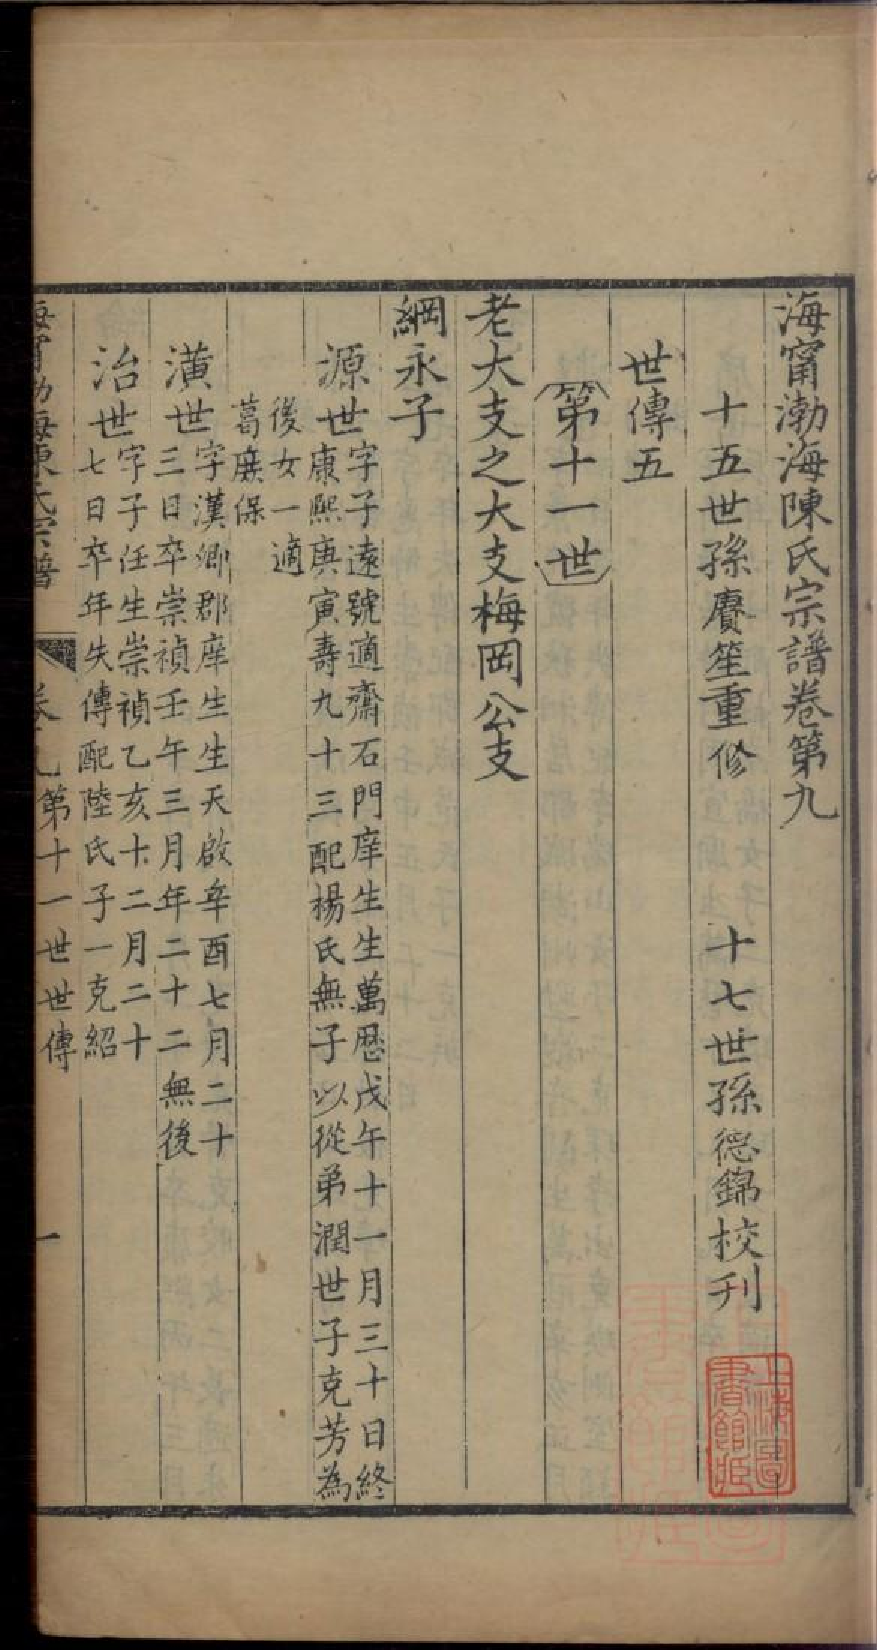 海甯渤海陳氏宗譜卷第九
十五世孫賡笙重修
十七世孫德錦校刊
世傳五
第十一世
老大支之大支梅岡公支
綱永子
源世字子遠號適齋石門庠生生萬曆戊午十一月三十日終
康熙庚寅壽九十三配楊氏無子以從弟潤世子克芳為
後女一適
葛廣保
潢世字漢卿郡庠生生天啟辛酉七月二十
三日卒崇禎壬午三月年二十二無後
治世字子任生崇禎乙亥十二月二十
七日卒年失傳配陸氏子一克紹
海甯渤海陳氏宗譜
卷九第十一世世傳
一
上海圖書館藏